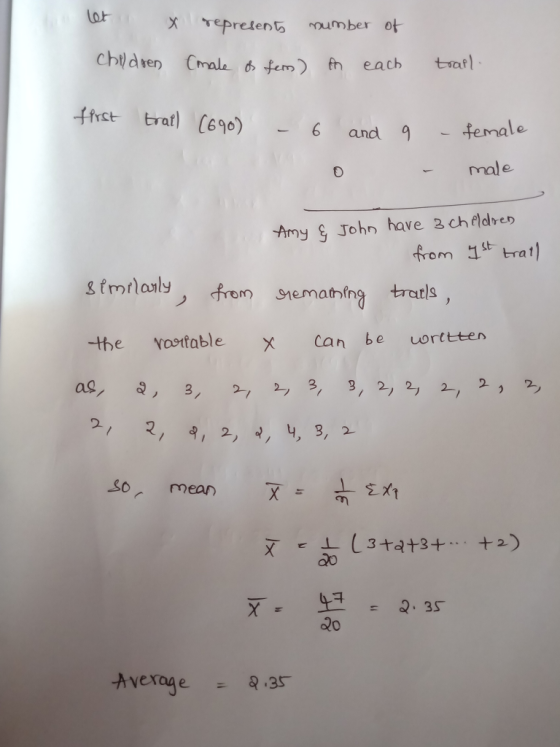 let x represents number of
children (male & fem) in each trail.
first trail (690) - 6 and 9 - female
0 - male
Amy & John have 3 children
from 1st trail
Similarly, from remaining trails,
the variable x can be written
as, 2, 3, 2, 2, 3, 3, 2, 2, 2, 2, 2,
2, 2, 2, 2, 2, 4, 3, 2
so, mean x̄ = 1/n Σxi
x̄ = 1/20 (3+2+3+... +2)
x̄ = 47/20 = 2.35
Average = 2.35